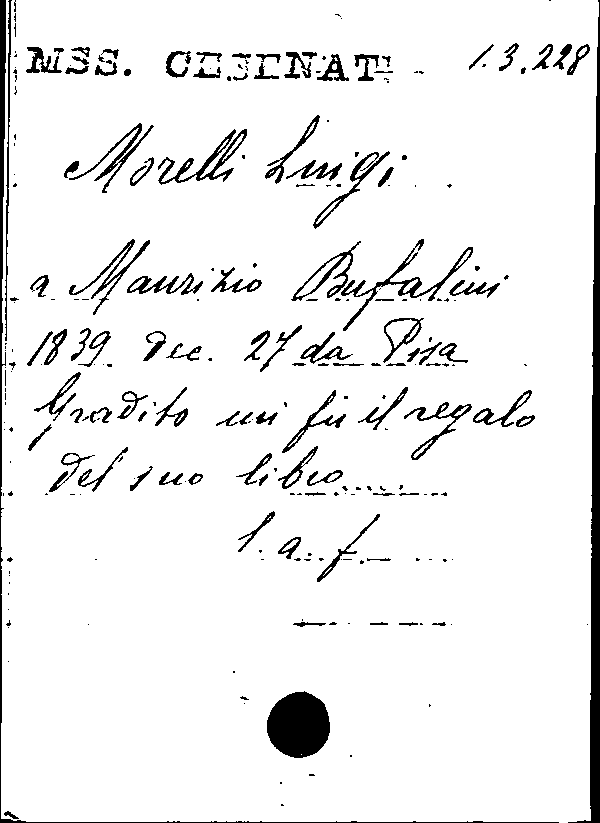 MSS. CESENATI 1.3.228
Morelli Luigi
a Maurizio Bufalini
1839 dec. 27 da Pisa
Gradito mi fu il regalo
del suo libro.....
l. a. f.